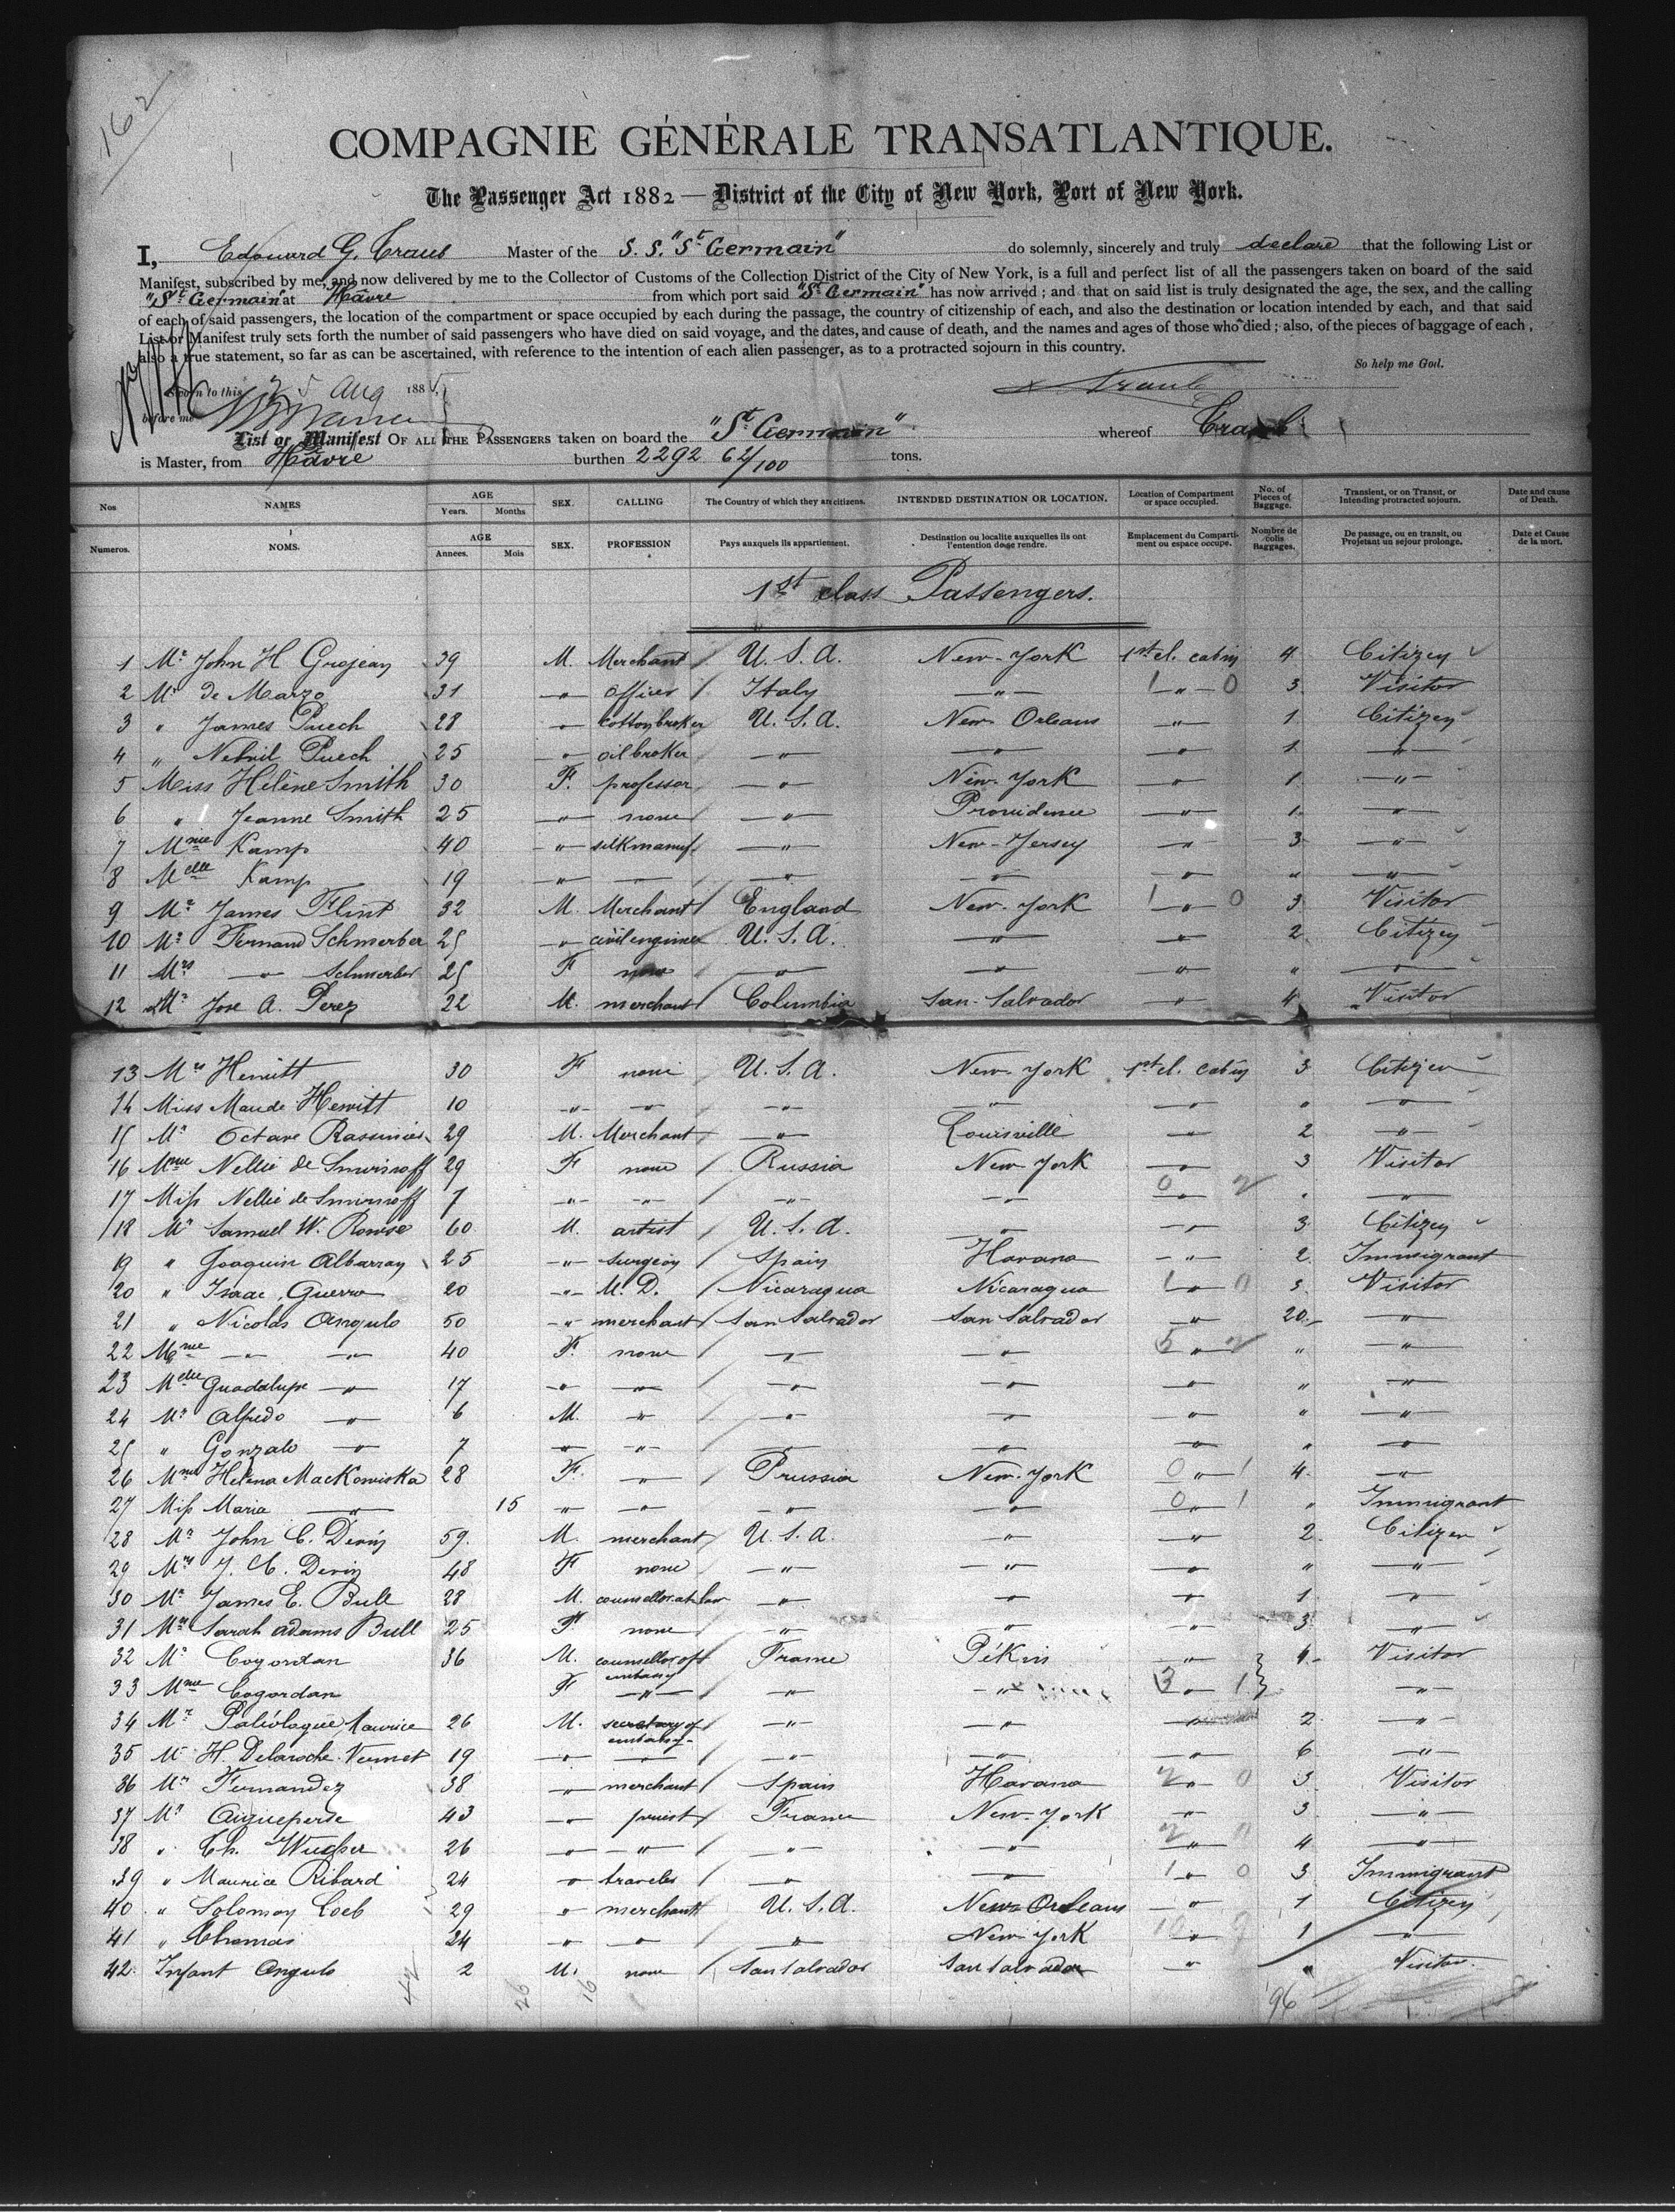 162
COMPAGNIE GÉNÉRALE TRANSATLANTIQUE.
The Passenger Act 1882 — District of the City of New York, Port of New York.
I, Edouard G. Traub Master of the S. S. "St Germain" do solemnly, sincerely and truly declare that the following List or
Manifest, subscribed by me, and now delivered by me to the Collector of Customs of the Collection District of the City of New York, is a full and perfect list of all the passengers taken on board of the said
"St Germain" at Hâvre from which port said "St Germain" has now arrived ; and that on said list is truly designated the age, the sex, and the calling
of each of said passengers, the location of the compartment or space occupied by each during the passage, the country of citizenship of each, and also the destination or location intended by each, and that said
List or Manifest truly sets forth the number of said passengers who have died on said voyage, and the dates, and cause of death, and the names and ages of those who died ; also, of the pieces of baggage of each ,
also a true statement, so far as can be ascertained, with reference to the intention of each alien passenger, as to a protracted sojourn in this country.
So help me God.
Sworn to this 25 Aug 1885, Traub
before me
List or Manifest OF ALL THE PASSENGERS taken on board the "St Germain" whereof Traub
is Master, from Hâvre burthen 2292 62/100 tons.
Nos NAMES AGE Years. Months SEX. CALLING The Country of which they are citizens. INTENDED DESTINATION OR LOCATION. Location of Compartment or space occupied. No. of Pieces of Baggage. Transient, or on Transit, or Intending protracted sojourn. Date and cause of Death.
Numeros. NOMS. AGE Annees. Mois SEX. PROFESSION Pays auxquels ils appartiement. Destination ou localite auxquelles ils ont l'entention de se rendre. Emplacement du Compartiment ou espace occupe. Nombre de colis Baggages. De passage, ou en transit, ou Projetant un sejour prolonge. Date et Cause de la mort.
1st class Passengers.
1 Mr John H Grojean 39 M. Merchant U. S. A. New-York 1st cl. cabin 4 Citizen
2 Mr de Marzo 31 -"- officer Italy -"- 1 -"- 0 3 Visitor
3 " James Puech 28 -"- cotton broker U. S. A. New Orleans -"- 1 Citizen
4 " Puech 25 -"- oil broker -"- -"- -"- 1 -"-
5 Miss Hélène Smith 30 F. professor -"- New-York -"- 1 -"-
6 " Jeanne Smith 25 -"- none -"- Providence -"- 1 -"-
7 Mme Kamp 40 -"- silk manuf. -"- New-Jersey -"- 3 -"-
8 Melle Kamp 19 -"- — -"- -"- -"- " -"-
9 Mr James Flint 32 M. Merchant England New-York 1 -"- 0 3 Visitor
10 Mr Fernand Schmerber 25 -"- civil engineer U. S. A. -"- -"- 2 Citizen
11 Mrs -"- Schmerber 25 F none -"- -"- -"- " -"-
12 Mr Jose A. Perez 22 M. merchant Columbia San-Salvador -"- 4 Visitor
13 Mrs Hewitt 30 F none U. S. A. New-York 1st cl. cabin 3 Citizen
14 Miss Maude Hewitt 10 -"- -"- -"- -"- -"- " -"-
15 Mr Octave 29 M. Merchant -"- Louisville -"- 2 -"-
16 Mme Nellie de Smirnoff 29 F none Russia New-York -"- 3 Visitor
17 Miss Nellie de Smirnoff 7 -"- -"- -"- -"- 0 -"- 2 " -"-
18 Mr Samuel W. Rowse 60 M. artist U. S. A. -"- -"- 3 Citizen
19 " Joaquin Albarran 25 -"- surgeon Spain Havana -"- 2 Immigrant
20 " Isaac Guerra 20 -"- M. D. Nicaragua Nicaragua 1 -"- 0 3 Visitor
21 " Nicolas Angulo 50 -"- merchant San Salvador San Salvador -"- 20 -"-
22 Mme -"- -"- 40 F. none -"- -"- 5 -"- 2 " -"-
23 Melle Guadalupe -"- 17 -"- -"- -"- -"- -"- " -"-
24 Mr Alfredo -"- 6 M. -"- -"- -"- -"- " -"-
25 " Gonzalo -"- 7 -"- -"- -"- -"- -"- " -"-
26 Mme Helena Mackowiska 28 F. -"- Prussia New-York 0 -"- 1 4 -"-
27 Miss Maria -"- 15 -"- -"- -"- -"- 0 -"- 1 " Immigrant
28 Mr John C. Devin 59 M. merchant U. S. A. -"- -"- 2 Citizen
29 Mrs J. C. Devin 48 F none -"- -"- -"- " -"-
30 Mr James E. Bull 28 M. counsellor at law -"- -"- -"- 1 -"-
31 Mrs Sarah Adams Bull 25 F none -"- -"- -"- 3 -"-
32 Mr Cogordan 36 M. counsellor of embassy France Pékin -"- Visitor
33 Mme Cogordan F -"- -"- -"- 3 -"- 1 -"-
34 Mr Paléologue Maurice 26 M. secretary of embassy -"- -"- -"- 2 -"-
35 Mr H. Delaroche-Vernet 19 -"- — -"- -"- -"- 6 -"-
36 Mr Fernandez 38 -"- merchant Spain Havana 2 -"- 0 3 Visitor
37 Mr Aigueperse 43 -"- priest France New-York -"- 3 -"-
38 " Ch. Wucher 26 -"- -"- -"- -"- 2 -"- 0 4 -"-
39 " Maurice Ribard 24 -"- traveler -"- -"- 1 -"- 0 3 Immigrant
40 " Solomon Loeb 29 -"- merchant U. S. A. New-Orleans -"- 1 Citizen
41 " Thomas 24 -"- -"- -"- New York -"- 1 -"-
42 Infant Angulo 2 M. none San Salvador San Salvador -"- " Visitor
42 26 16 96